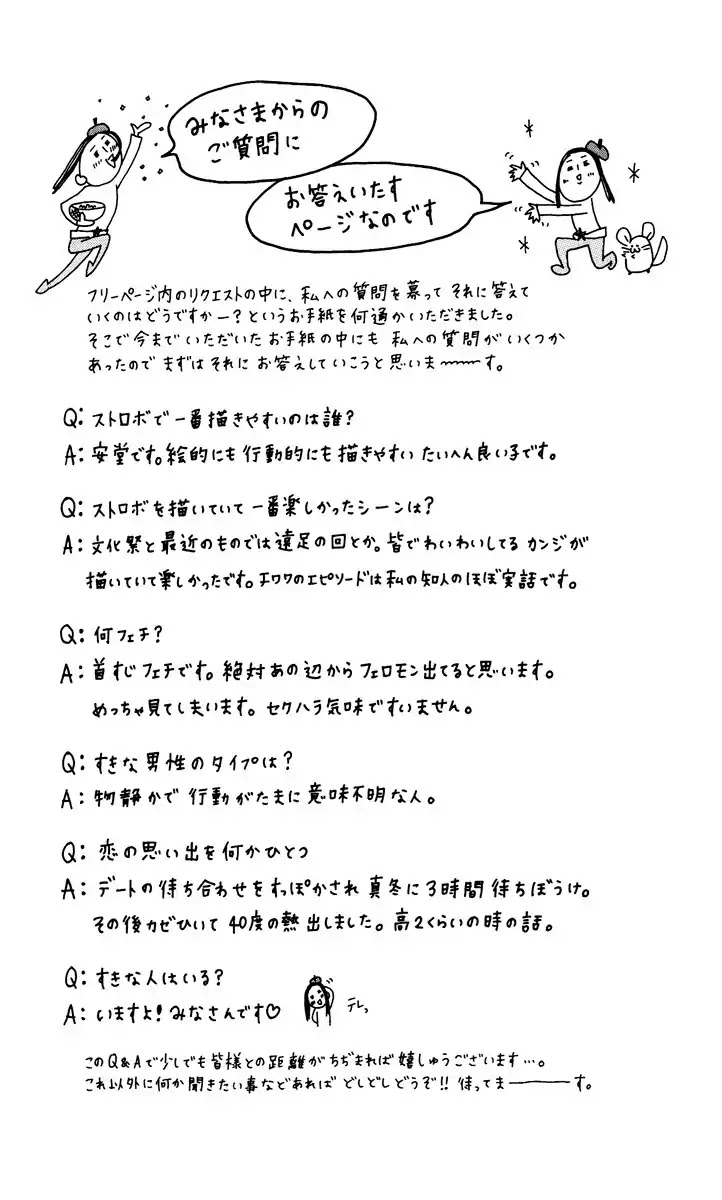 みなさまからの
ご質問に
お答えいたす
ページなのです
フリーページ内のリクエストの中に、私への質問を募って それに答えて
いくのはどうですかー?というお手紙を何通かいただきました。
そこで今まで いただいた お手紙の中にも 私への質問が いくつか
あったので まずは それに お答えしていこうと思いま〜〜す。
Q: ストロボで 一番描きやすいのは誰?
A: 安堂です。絵的にも 行動的にも 描きやすい たいへん良い子です。
Q: ストロボを描いていて 一番楽しかったシーンは?
A: 文化祭と最近のものでは遠足の回とか。皆でわいわいしてる カンジが
描いていて楽しかったです。チワワのエピソードは私の知人のほぼ実話です。
Q: 何フェチ?
A: 首すじフェチです。絶対あの辺からフェロモン出てると思います。
めっちゃ見てしまいます。セクハラ気味ですいません。
Q: すきな男性のタイプは?
A: 物静かで 行動がたまに意味不明な人。
Q: 恋の思い出を何かひとつ
A: デートの待ち合わせをすっぽかされ 真冬に3時間待ちぼうけ。
その後カゼひいて 40度の熱出しました。高2くらいの時の話。
Q: すきな人はいる?
A: いますよ!みなさんです♡
テレっ
このQ&Aで少しでも皆様との距離がちぢまれば嬉しゅうございます…。
これ以外に何か聞きたい事などあれば どしどしどうぞ!! 待ってま―――す。